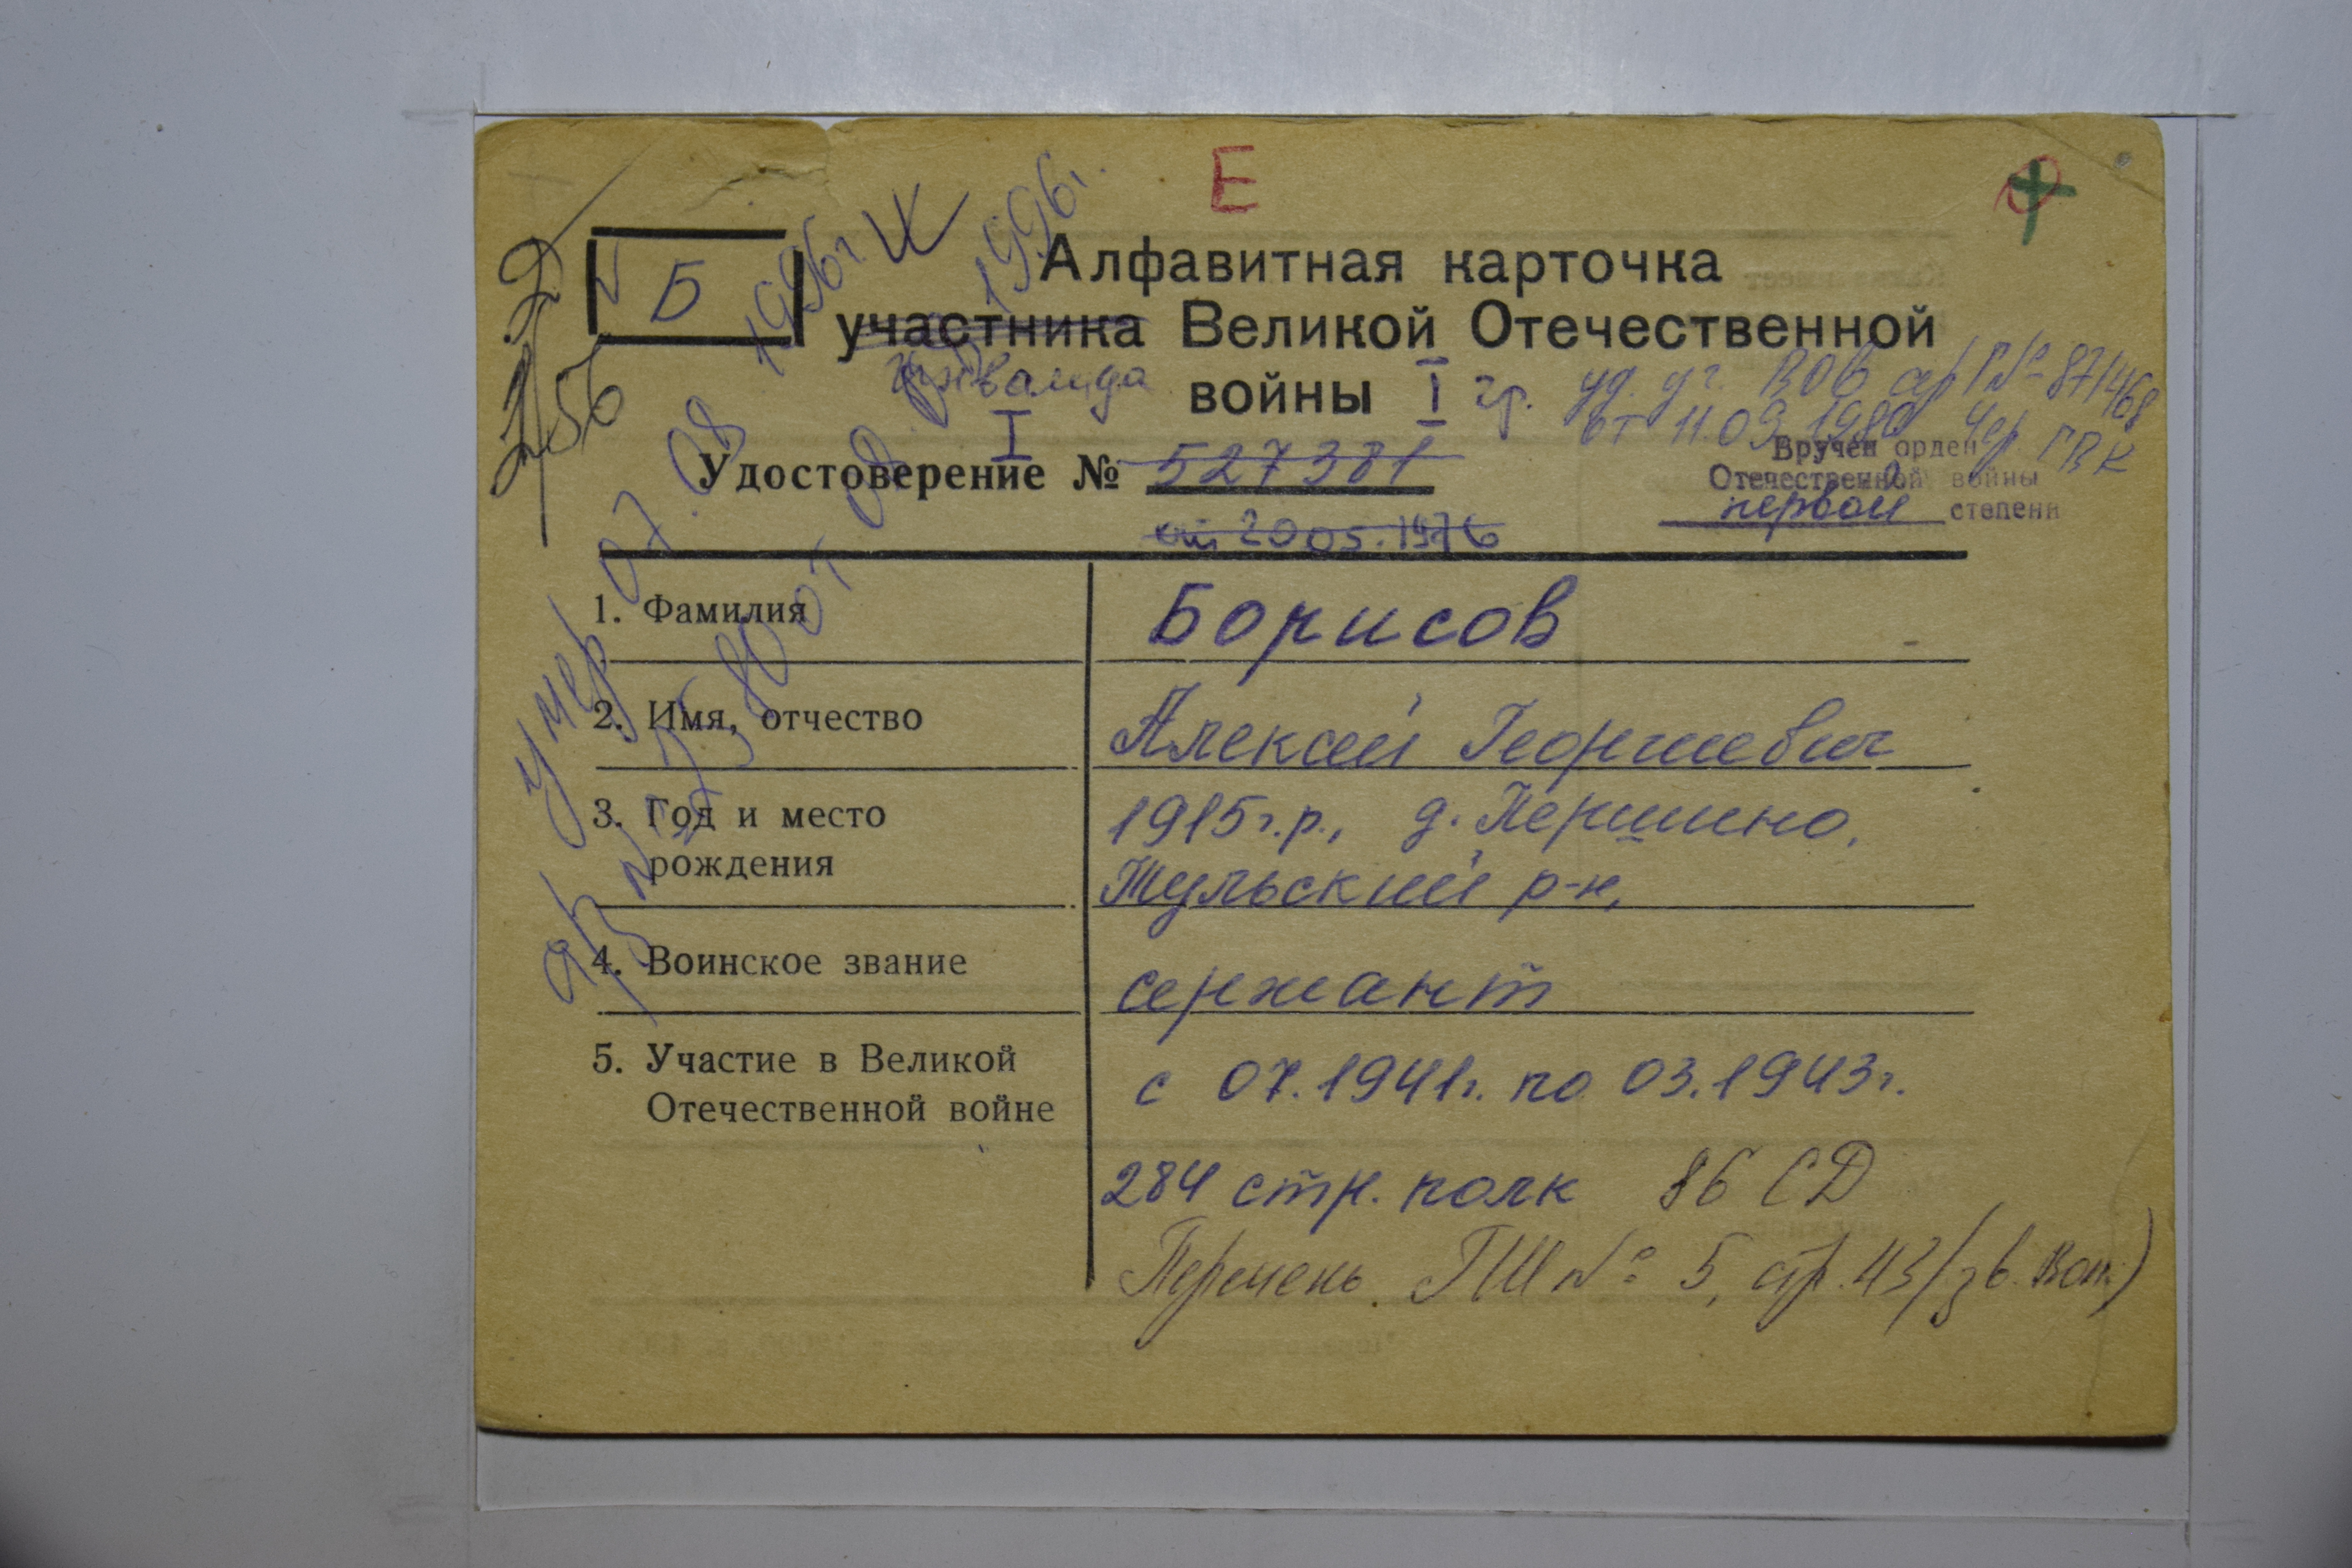 Е
Б
Алфавитная карточка
участника Великой Отечественной
инвалида войны I гр.
уд. уч. ВОВ сер Г № 871468
от 11.09.1980
I
Удостоверение № 527381
от 20 05.1976
Вручен орден
Отечественной войны
первой степени
умер 07 08 1996г
1996г.
1. Фамилия Борисов
2. Имя, отчество Алексей Георгиевич
3. Год и место 1915г.р., д. Першино,
рождения Тульский р-н,
4. Воинское звание сержант
5. Участие в Великой с 07.1941г. по 03.1943г.
Отечественной войне
284 стр. полк 86 СД
Перечень ГШ № 5, стр. 43
256